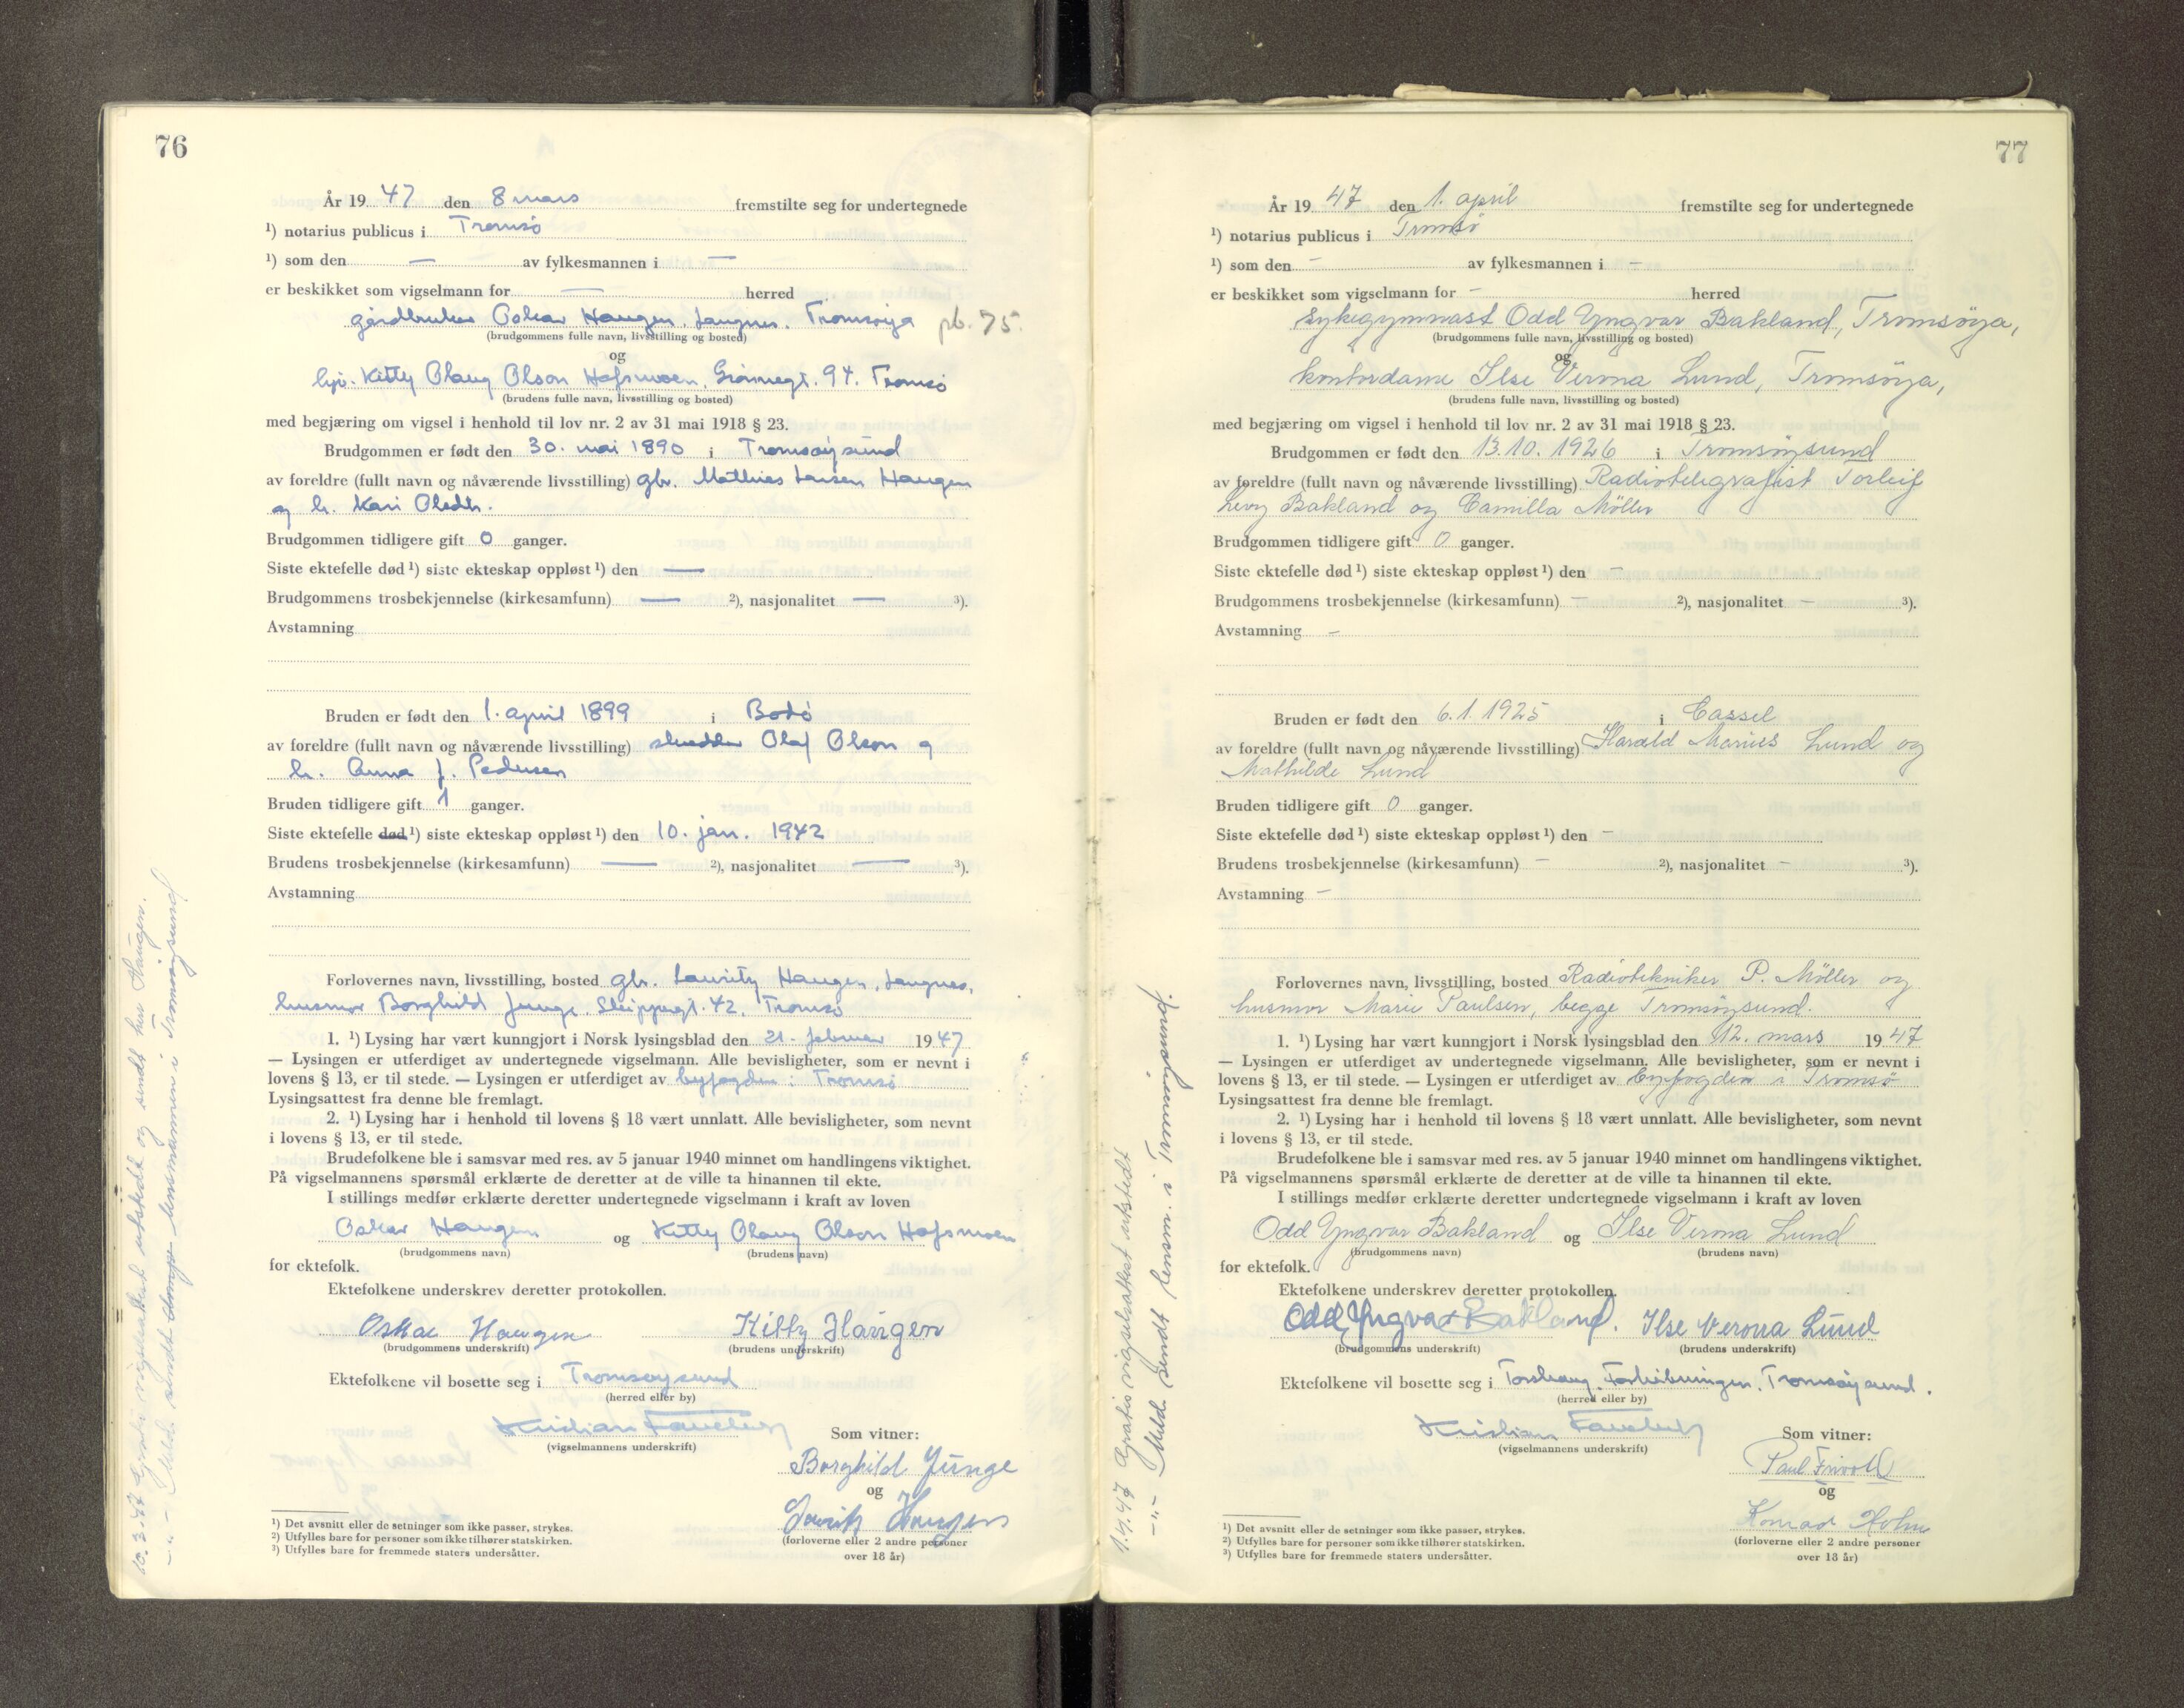 76
År 19 47 den 8 mars fremstilte seg for undertegnede
¹) notarius publicus i Tromsö
¹) som den — av fylkesmannen i —
er beskikket som vigselmann for — herred
gårdbruker Oskar Haugen, Langnes, Tromsöya pb. 75.
(brudgommens fulle navn, livsstilling og bosted)
og
Kitty Olaug Olson Hofsmoen, Grönnegt. 94. Tromsö
(brudens fulle navn, livsstilling og bosted)
med begjæring om vigsel i henhold til lov nr. 2 av 31 mai 1918 § 23.
Brudgommen er født den 30. mai 1890 i Tromsöysund
av foreldre (fullt navn og nåværende livsstilling) gbr. Mathias Larsen Haugen
og h. Kari Olsdtr.
Brudgommen tidligere gift 0 ganger.
Siste ektefelle død ¹) siste ekteskap oppløst ¹) den —
Brudgommens trosbekjennelse (kirkesamfunn) — ²), nasjonalitet — ³).
Avstamning
Bruden er født den 1. april 1899 i Bodö
av foreldre (fullt navn og nåværende livsstilling) skredder Olaf Olson og
h. Anna J. Pedersen
Bruden tidligere gift 1 ganger.
Siste ektefelle død ¹) siste ekteskap oppløst ¹) den 10. jan. 1942
Brudens trosbekjennelse (kirkesamfunn) — ²), nasjonalitet — ³).
Avstamning
Forlovernes navn, livsstilling, bosted gbr. Lauritz Haugen, Langnes,
husmor Borghild Junge, Skippergt. 42, Tromsö
1. ¹) Lysing har vært kunngjort i Norsk lysingsblad den 21. februar 1947
— Lysingen er utferdiget av undertegnede vigselmann. Alle bevisligheter, som er nevnt i
lovens § 13, er til stede. — Lysingen er utferdiget av byfogden i Tromsö
Lysingsattest fra denne ble fremlagt.
2. ¹) Lysing har i henhold til lovens § 18 vært unnlatt. Alle bevisligheter, som nevnt
i lovens § 13, er til stede.
Brudefolkene ble i samsvar med res. av 5 januar 1940 minnet om handlingens viktighet.
På vigselmannens spørsmål erklærte de deretter at de ville ta hinannen til ekte.
I stillings medfør erklærte deretter undertegnede vigselmann i kraft av loven
Oskar Haugen og Kitty Olaug Olson Hofsmoen
(brudgommens navn) (brudens navn)
for ektefolk.
Ektefolkene underskrev deretter protokollen.
Oskar Haugen Kitty Haugen
(brudgommens underskrift) (brudens underskrift)
Ektefolkene vil bosette seg i Tromsöysund
(herred eller by)
Kristian
(vigselmannens underskrift)
Som vitner:
Borghild Junge
og
Lauritz Haugen
(forloverne eller 2 andre personer
over 18 år)
¹) Det avsnitt eller de setninger som ikke passer, strykes.
²) Utfylles bare for personer som ikke tilhører statskirken.
³) Utfylles bare for fremmede staters undersåtter.
10.3.47 Gratis vigselsattest utstedt og sendt hr. Haugen.
—„— Meld. sendt lensmannen i Tromsöysund
77
År 19 47 den 1. april fremstilte seg for undertegnede
¹) notarius publicus i Tromsö
¹) som den – av fylkesmannen i –
er beskikket som vigselmann for – herred
Sykegymnast Odd Yngvar Bakland, Tromsöya,
(brudgommens fulle navn, livsstilling og bosted)
og
kontordame Ilse Verona Lund, Tromsöya,
(brudens fulle navn, livsstilling og bosted)
med begjæring om vigsel i henhold til lov nr. 2 av 31 mai 1918 § 23.
Brudgommen er født den 13.10.1926 i Tromsöysund
av foreldre (fullt navn og nåværende livsstilling) Radiotelegrafist Torleif
Levy Bakland og Camilla Möller
Brudgommen tidligere gift 0 ganger.
Siste ektefelle død ¹) siste ekteskap oppløst ¹) den –
Brudgommens trosbekjennelse (kirkesamfunn) – ²), nasjonalitet – ³).
Avstamning –
Bruden er født den 6.1.1925 i Cassel
av foreldre (fullt navn og nåværende livsstilling) Harald Marius Lund og
Mathilde Lund
Bruden tidligere gift 0 ganger.
Siste ektefelle død ¹) siste ekteskap oppløst ¹) den –
Brudens trosbekjennelse (kirkesamfunn) – ²), nasjonalitet – ³).
Avstamning –
Forlovernes navn, livsstilling, bosted Radiotekniker P. Möller og
husmor Marie Paulsen, begge Tromsöysund.
1. ¹) Lysing har vært kunngjort i Norsk lysingsblad den 12. mars 1947
— Lysingen er utferdiget av undertegnede vigselmann. Alle bevisligheter, som er nevnt i
lovens § 13, er til stede. — Lysingen er utferdiget av byfogden i Tromsö
Lysingsattest fra denne ble fremlagt.
2. ¹) Lysing har i henhold til lovens § 18 vært unnlatt. Alle bevisligheter, som nevnt
i lovens § 13, er til stede.
Brudefolkene ble i samsvar med res. av 5 januar 1940 minnet om handlingens viktighet.
På vigselmannens spørsmål erklærte de deretter at de ville ta hinannen til ekte.
I stillings medfør erklærte deretter undertegnede vigselmann i kraft av loven
Odd Yngvar Bakland og Ilse Verona Lund
(brudgommens navn) (brudens navn)
for ektefolk.
Ektefolkene underskrev deretter protokollen.
Odd Yngvar Bakland. Ilse Verona Lund
(brudgommens underskrift) (brudens underskrift)
Ektefolkene vil bosette seg i Tromsöysund.
(herred eller by)
Kristian
(vigselmannens underskrift)
Som vitner:
Paul
og
Konrad Holm
(forloverne eller 2 andre personer
over 18 år)
¹) Det avsnitt eller de setninger som ikke passer, strykes.
²) Utfylles bare for personer som ikke tilhører statskirken.
³) Utfylles bare for fremmede staters undersåtter.
1.4.47 Gratis vigselsattest utstedt
—„— Meld. sendt lensm. i Tromsöysund.